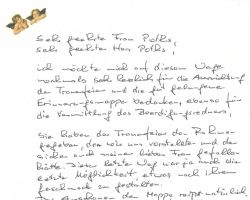 Sehr geehrte Frau Poths,
sehr geehrter Herr Poths,
ich möchte mich auf diesem Wege
nochmals sehr herzlich für die Ausrichtung
der Trauerfeier und die gut gelungene
Erinnerungsmappe bedanken, ebenso für
die Vermittlung des Beerdigungsredners.
Sie haben der Trauerfeier den Rahmen
gegeben, den wir uns vorstellten und der
sicher auch meiner lieben Frau gefallen
hätte. Dieser letzte Weg war ja auch die
letzte Möglichkeit, etwas nach ihrem
Geschmack zu gestalten.
Das Anschauen der Mappe